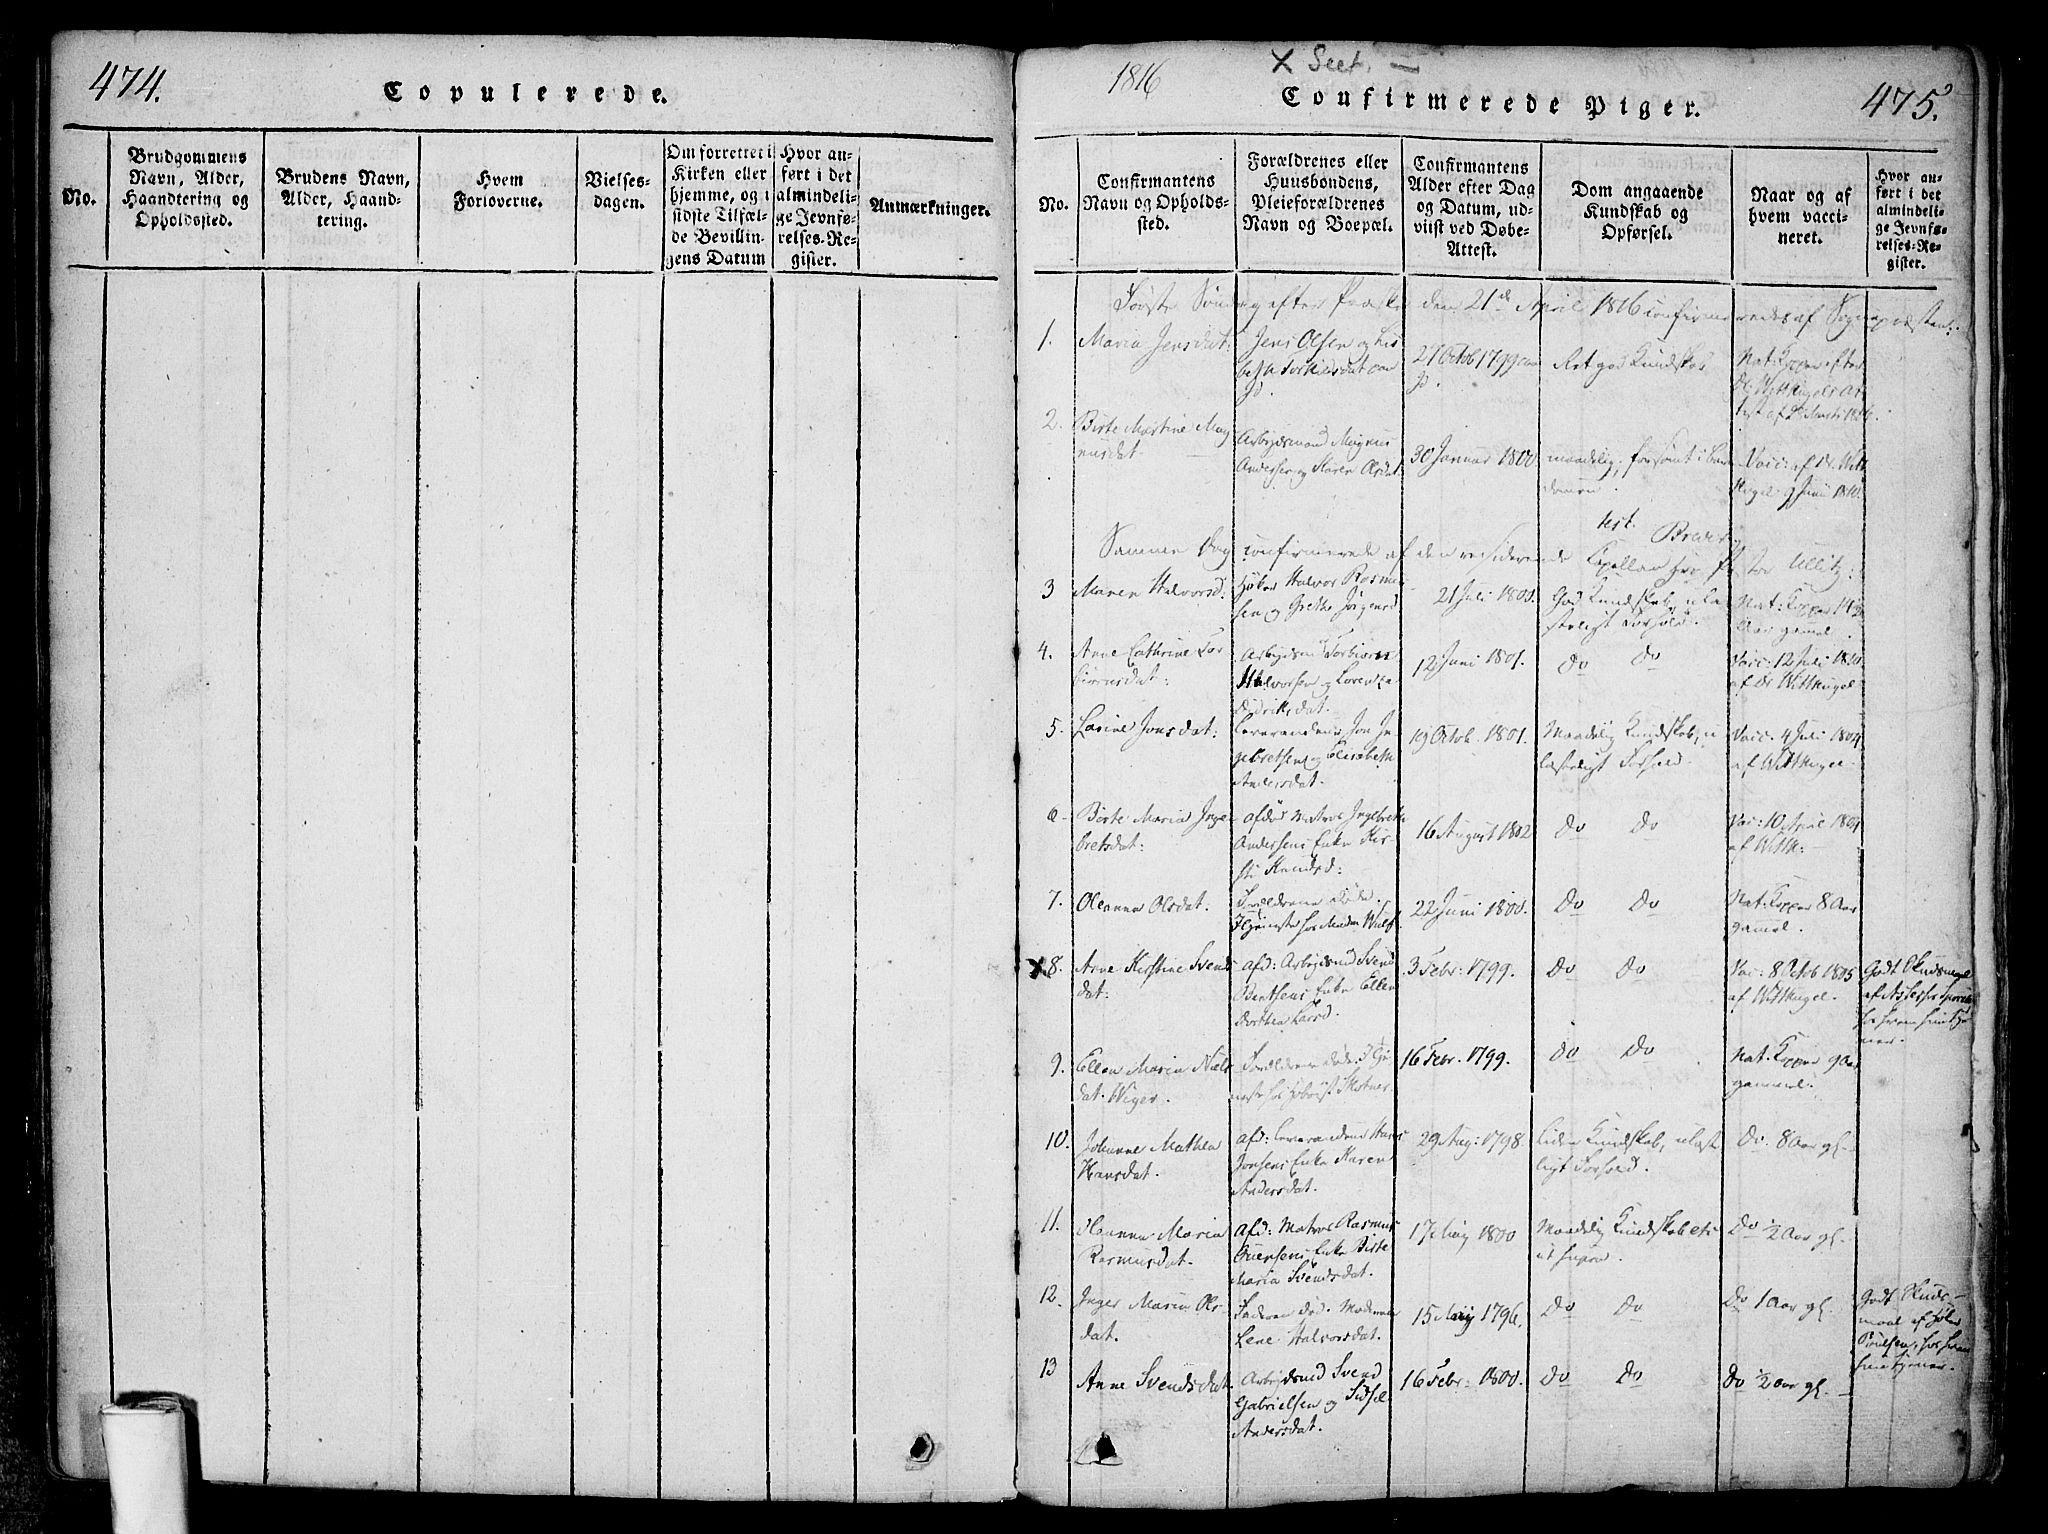 474.
Copulerede.
No.
Brudgommens Navn, Alder, Haandtering og Opholdssted.
Brudens Navn, Alder, Haandtering.
Hvem Forloverne.
Vielsesdagen.
Om forrettet i Kirken eller hjemme, og i sidste Tilfælde Bevillingens Datum
Hvor anført i det almindelige Jevnførelses-Register.
Anmærkninger.
1816
X Sect.
Confirmerede Piger.
475.
No.
Confirmantens Navn og Opholdssted.
Forældrenes eller Huusbondens, Pleieforældrenes Navn og Boepæl.
Confirmantens Alder efter Dag og Datum, udviist ved Døbe-Attest.
Dom angaaende Kundskab og Opførsel.
Naar og af hvem vaccineret.
Hvor anført i det almindelige Jevnførelses-Register.
Første Søndag efter Paaske den 21de April 1816 confirmeredes af Sognepræsten:
1. Maria Jensdat:
Jens Olsen og Lisbeth Torkildsdat
29 Octob 1799
Ret god Kundskab
Nat: Kopper efter Dr Wittkugels Attest af
2. Birte Martine Magnusdat.
Arbejdsmand Magnus Andersen og Karen Olsdat
30 Januar 1800
maadelig, forsømt i Barndomen.
Vacc: af Dr. Wittkugel 9 Juni 1810.
test.
Samme Dag confirmerede af den residerende Capellan Hr Pastor Ullitz:
3 Maren Halvorsd.
Høker Halvor Rasmussen og Grethe Jørgensd
21 Juli 1800.
God Kundskab, ulasteligt Forhold.
Nat: Kopper
Aar gamel.
4. Anne Cathrine Torbiørnsdat:
Arbejdsmd Torbiørn Halvorsen og Lorentza Didriksdat.
12 Juni 1801.
Do Do
Vacc: 12 Juli 1810. af Dr Wittkugel
5. Lavine Jonsdat:
Leverandeur Jon Ingebretsen og Elisabeth Andersdat.
19 Octob. 1801.
Maadelig Kundskab, ulasteligt Forhold.
Vacc. 4 Juli 1804 af Wittkugel
6. Birte Maria Ingebretsdat:
afdøde Matros Ingebreth Andersens Enke Kirsti Knudsd:
16 August 1802
Do Do
Vac: 10 April 1804 af Wittk:
7. Oleanna Olsdat.
Forældrene døde. I Tjeneste hos Madm Wulf.
22 Juni 1800.
Do Do
Nat: Kopper 8 Aar gamel.
X 8. Anne Kirstine Svendsdat:
afd: Arbejdsmd Svend Berthsens Enke Ellen Dorthea Larsd.
3 Febr: 1799.
Do Do
Vac: 8 Octob 1805 af Wittkugel.
Godt Skudsmaal af Assessor
9. Ellen Maria Nielsdat. Wiger.
Forældrene døde. I Tjeneste hos
16 Febr. 1799.
Do Do
Nat. Kopper 9 Aar gammel.
10. Johanne Mathea Hansdat.
afd: Leverandeur Hans Jonsens Enke Karen Andersdat.
29 Aug: 1798.
Liden Kundskab, ulasteligt Forhold.
Do. 8 Aar gl.
11. Oleanna Maria Rasmusdat.
afd: Matros Rasmus Evensens Enke Birte Maria Svendsdat.
17 May 1800
Maadelig Kundskab etc ut supra.
Do 1/2 Aar gl.
12. Inger Maria Olsdat.
Faderen død. Moderen Lene Halvorsdat.
15 May 1796.
Do Do
Do 1 Aar gl.
Godt Skudsmaal af Poulsen, hos hvem hun tjener.
13 Anne Svendsdat.
Arbejdsmd Svend Gabrielsen og Sidsel Andersdat.
16 Febr. 1800.
Do Do
Do 1/2 Aar gl.